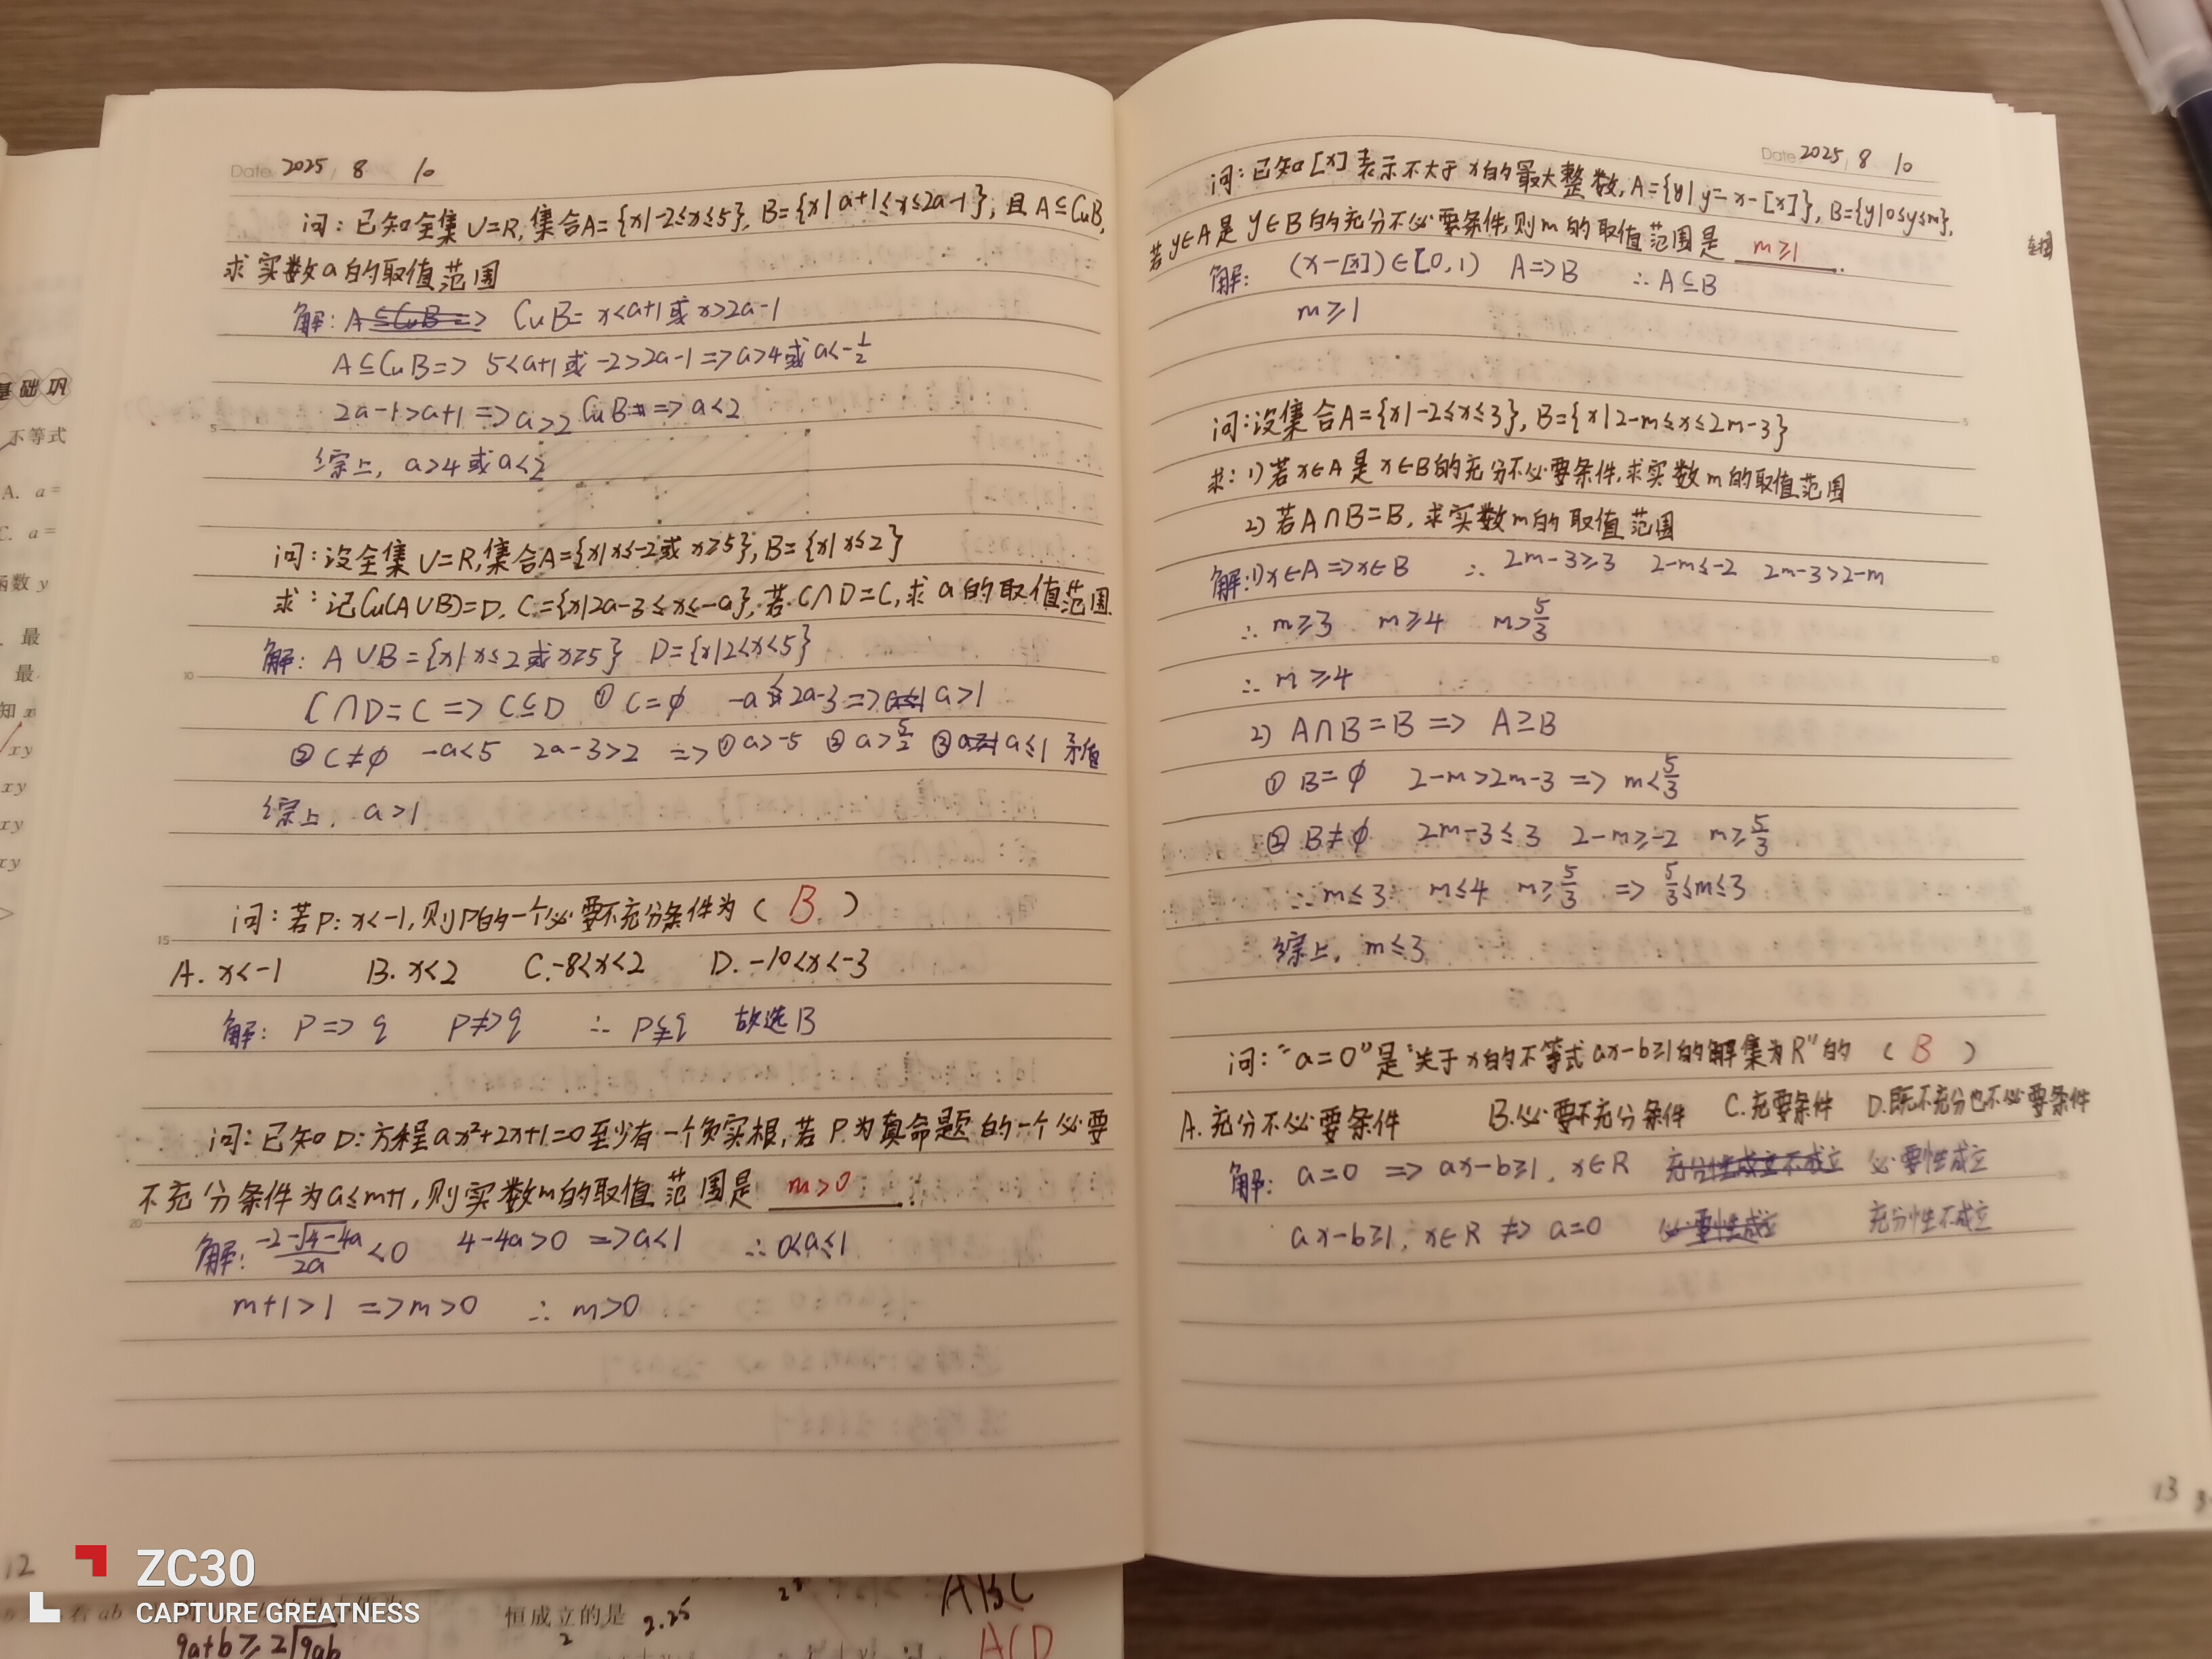 Date 2025 / 8 / 10
问：已知全集U=R,集合A={x|-2≤x≤5},B={x|a+1≤x≤2a-1},且A⊆CuB,
求实数a的取值范围
解：A⊆CuB=> CuB= x<a+1或x>2a-1
A⊆CuB=> 5<a+1或-2>2a-1=>a>4或a<-1/2
2a-1>a+1 =>a>2 CuB= =>a<2
综上, a>4或a<2
问：设全集U=R,集合A={x|x≤-2或x≥5},B={x|x≤2}
求：记Cu(A∪B)=D, C={x|2a-3≤x≤-a},若C∩D=C,求a的取值范围.
解：A∪B={x|x≤2或x≥5} D={x|2<x<5}
C∩D=C => C⊆D ①C=∅ -a<2a-3=>a>1
②C≠∅ -a<5 2a-3>2 =>①a>-5 ②a>5/2 ③a≤1 矛盾
综上, a>1
问：若P:x<-1,则P的一个必要不充分条件为( B )
A. x<-1 B. x<2 C.-8<x<2 D.-10<x<-3
解：P=>q P≠>q ∴P⫋q 故选B
问：已知D:方程ax²+2x+1=0至少有一个负实根,若P为真命题的一个必要
不充分条件为a≤m+1,则实数m的取值范围是 m>0 .
解：(-2-√(4-4a))/2a<0 4-4a>0 =>a<1 ∴0<a≤1
m+1>1 =>m>0 ∴m>0
12
Date 2025 / 8 / 10
问：已知[x]表示不大于x的最大整数,A={y|y=x-[x]},B={y|0≤y≤m},
若y∈A是y∈B的充分不必要条件,则m的取值范围是 m≥1 .
解： (x-[x])∈[0,1) A=>B ∴A⊆B
m≥1
问：设集合A={x|-2≤x≤3},B={x|2-m≤x≤2m-3}
求：1)若x∈A是x∈B的充分不必要条件,求实数m的取值范围
2)若A∩B=B,求实数m的取值范围
解：1)x∈A=>x∈B ∴ 2m-3≥3 2-m≤-2 2m-3>2-m
∴ m≥3 m≥4 m>5/3
∴ m≥4
2) A∩B=B => A⊇B
① B=∅ 2-m>2m-3 => m<5/3
② B≠∅ 2m-3≤3 2-m≥-2 m≥5/3
∴m≤3 m≤4 m≥5/3 => 5/3≤m≤3
综上, m≤3
问："a=0"是"关于x的不等式ax-b≥1的解集为R"的 ( B )
A.充分不必要条件 B.必要不充分条件 C.充要条件 D.既不充分也不必要条件
解：a=0 => ax-b≥1, x∈R 充分性成立不成立 必要性成立
ax-b≥1, x∈R ≠> a=0 必要性成立 充分性不成立
13
基础巩
不等式
A. a=
C. a=
函数y
最
最
知x
xy
xy
xy
xy
若ab
9a+b≥2√9ab
恒成立的是
2.25
ABC
ACD
ZC30
CAPTURE GREATNESS